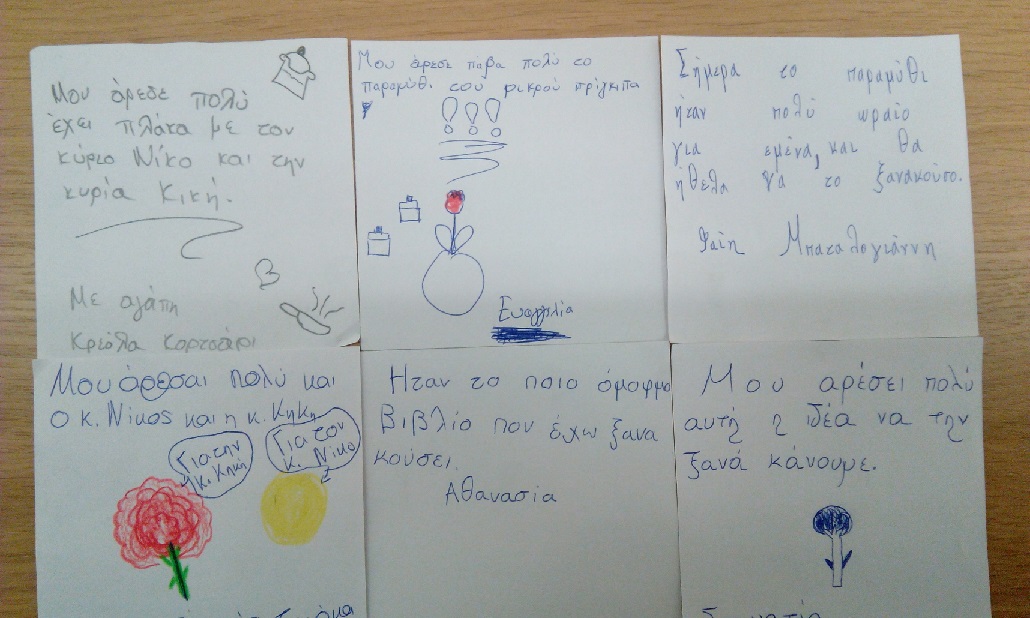 Μου άρεσε πολύ
έχει πλάκα με τον
κύριο Νίκο και την
κυρία Κική.
Με αγάπη
Μου άρεσε πάρα πολύ το
παραμύθι του μικρού πρίγκιπα
!!!
Ευαγγελία
Σήμερα το παραμύθι
ήταν πολύ ωραίο
για εμένα, και θα
ήθελα να το ξανακούσω.
Φαίη Μπαταλογιάννη
Μου άρεσαι πολύ και
ο κ. Νίκος και η κ. Κηκη
Για την
κ. Κηκή
Για τον
κ. Νίκο
Ηταν το ποιο όμορφο
βιβλίο που έχω ξανα
κούσει.
Αθανασία
Μου αρέσει πολύ
αυτή η ιδέα να την
ξανά κάνουμε.